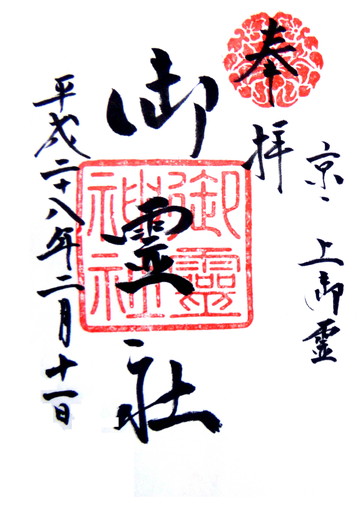 奉拝
京、上御霊
御霊社
平成二十八年二月十一日
御靈神社